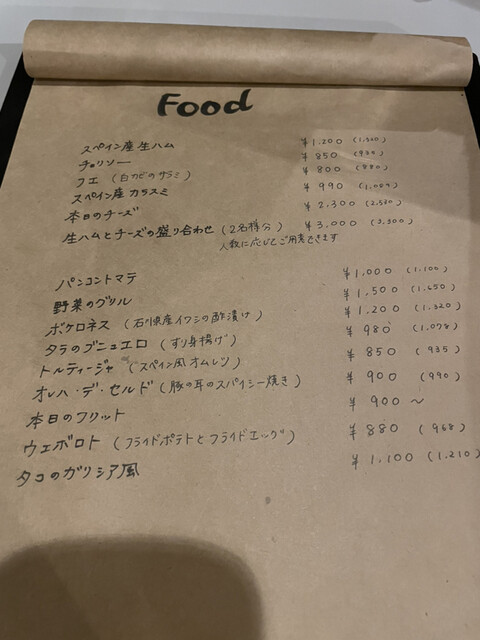 Food
スペイン産 生ハム ¥1.200 (1.320)
チョリソー ¥850 (935)
フエ (白カビのサラミ) ¥800 (880)
スペイン産 カラスミ ¥990 (1.089)
本日のチーズ ¥2.300 (2.530)
生ハムとチーズの盛り合わせ (2名様分) ¥3,000 (3,300)
人数に応じてご用意できます
パンコントマテ ¥1,000 (1.100)
野菜のグリル ¥1,500 (1.650)
ボケロネス (石川県産イワシの酢漬け) ¥1.200 (1.320)
タラのブニュエロ (すり身揚げ) ¥980 (1.078)
トルティージャ (スペイン風オムレツ) ¥850 (935)
オレハ・デ・セルド (豚の耳のスパイシー焼き) ¥900 (990)
本日のフリット ¥900〜
ウェボロト (フライドポテトとフライドエッグ) ¥880 (968)
タコのガリシア風 ¥1.100 (1.210)